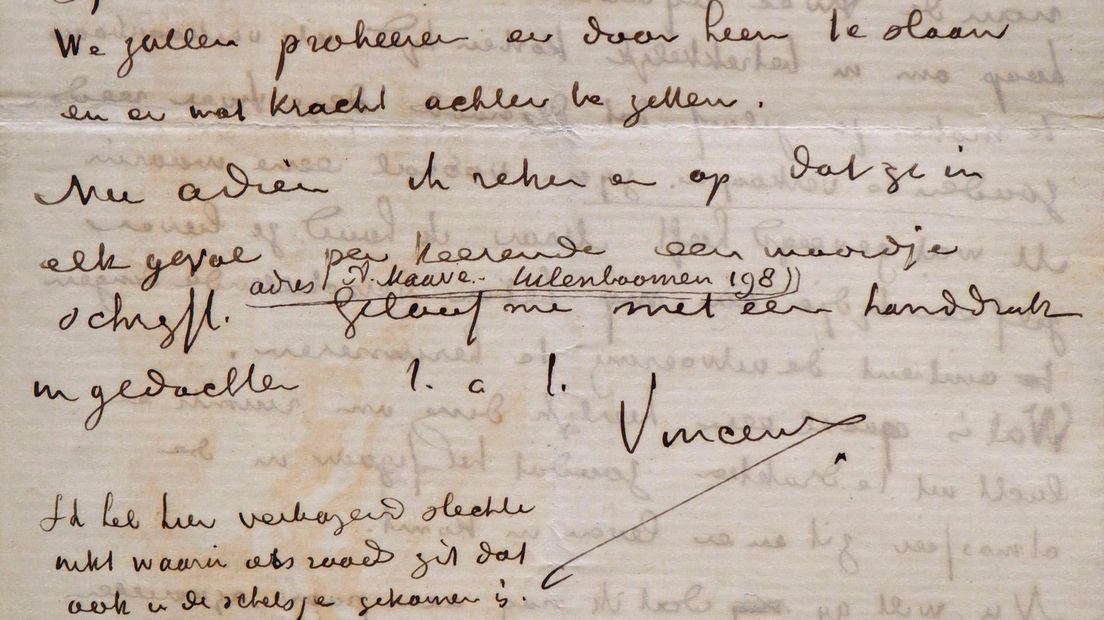 We zullen probeeren er door heen te slaan
en er wat kracht achter te zetten.
Nu adieu ik reken er op dat ge in
elk geval per keerende een woordje
adres A. Mauve. Uilenboomen 198))
schrijft. Geloof me met een handdruk
in gedachten t. à t.
Vincent
Ik heb hier verbazend slechte
inkt waarin iets zit dat
ook in de schetsje gekomen is.